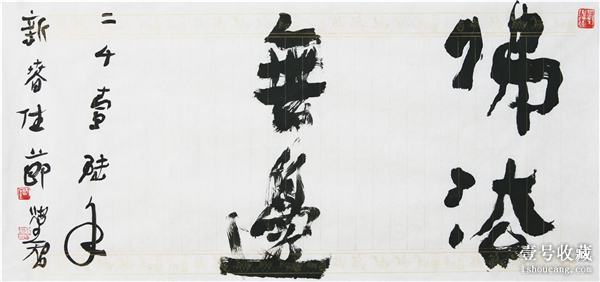 佛法
無邊
二千壹陸年
新春佳節
壹号收藏
1shoucang.com